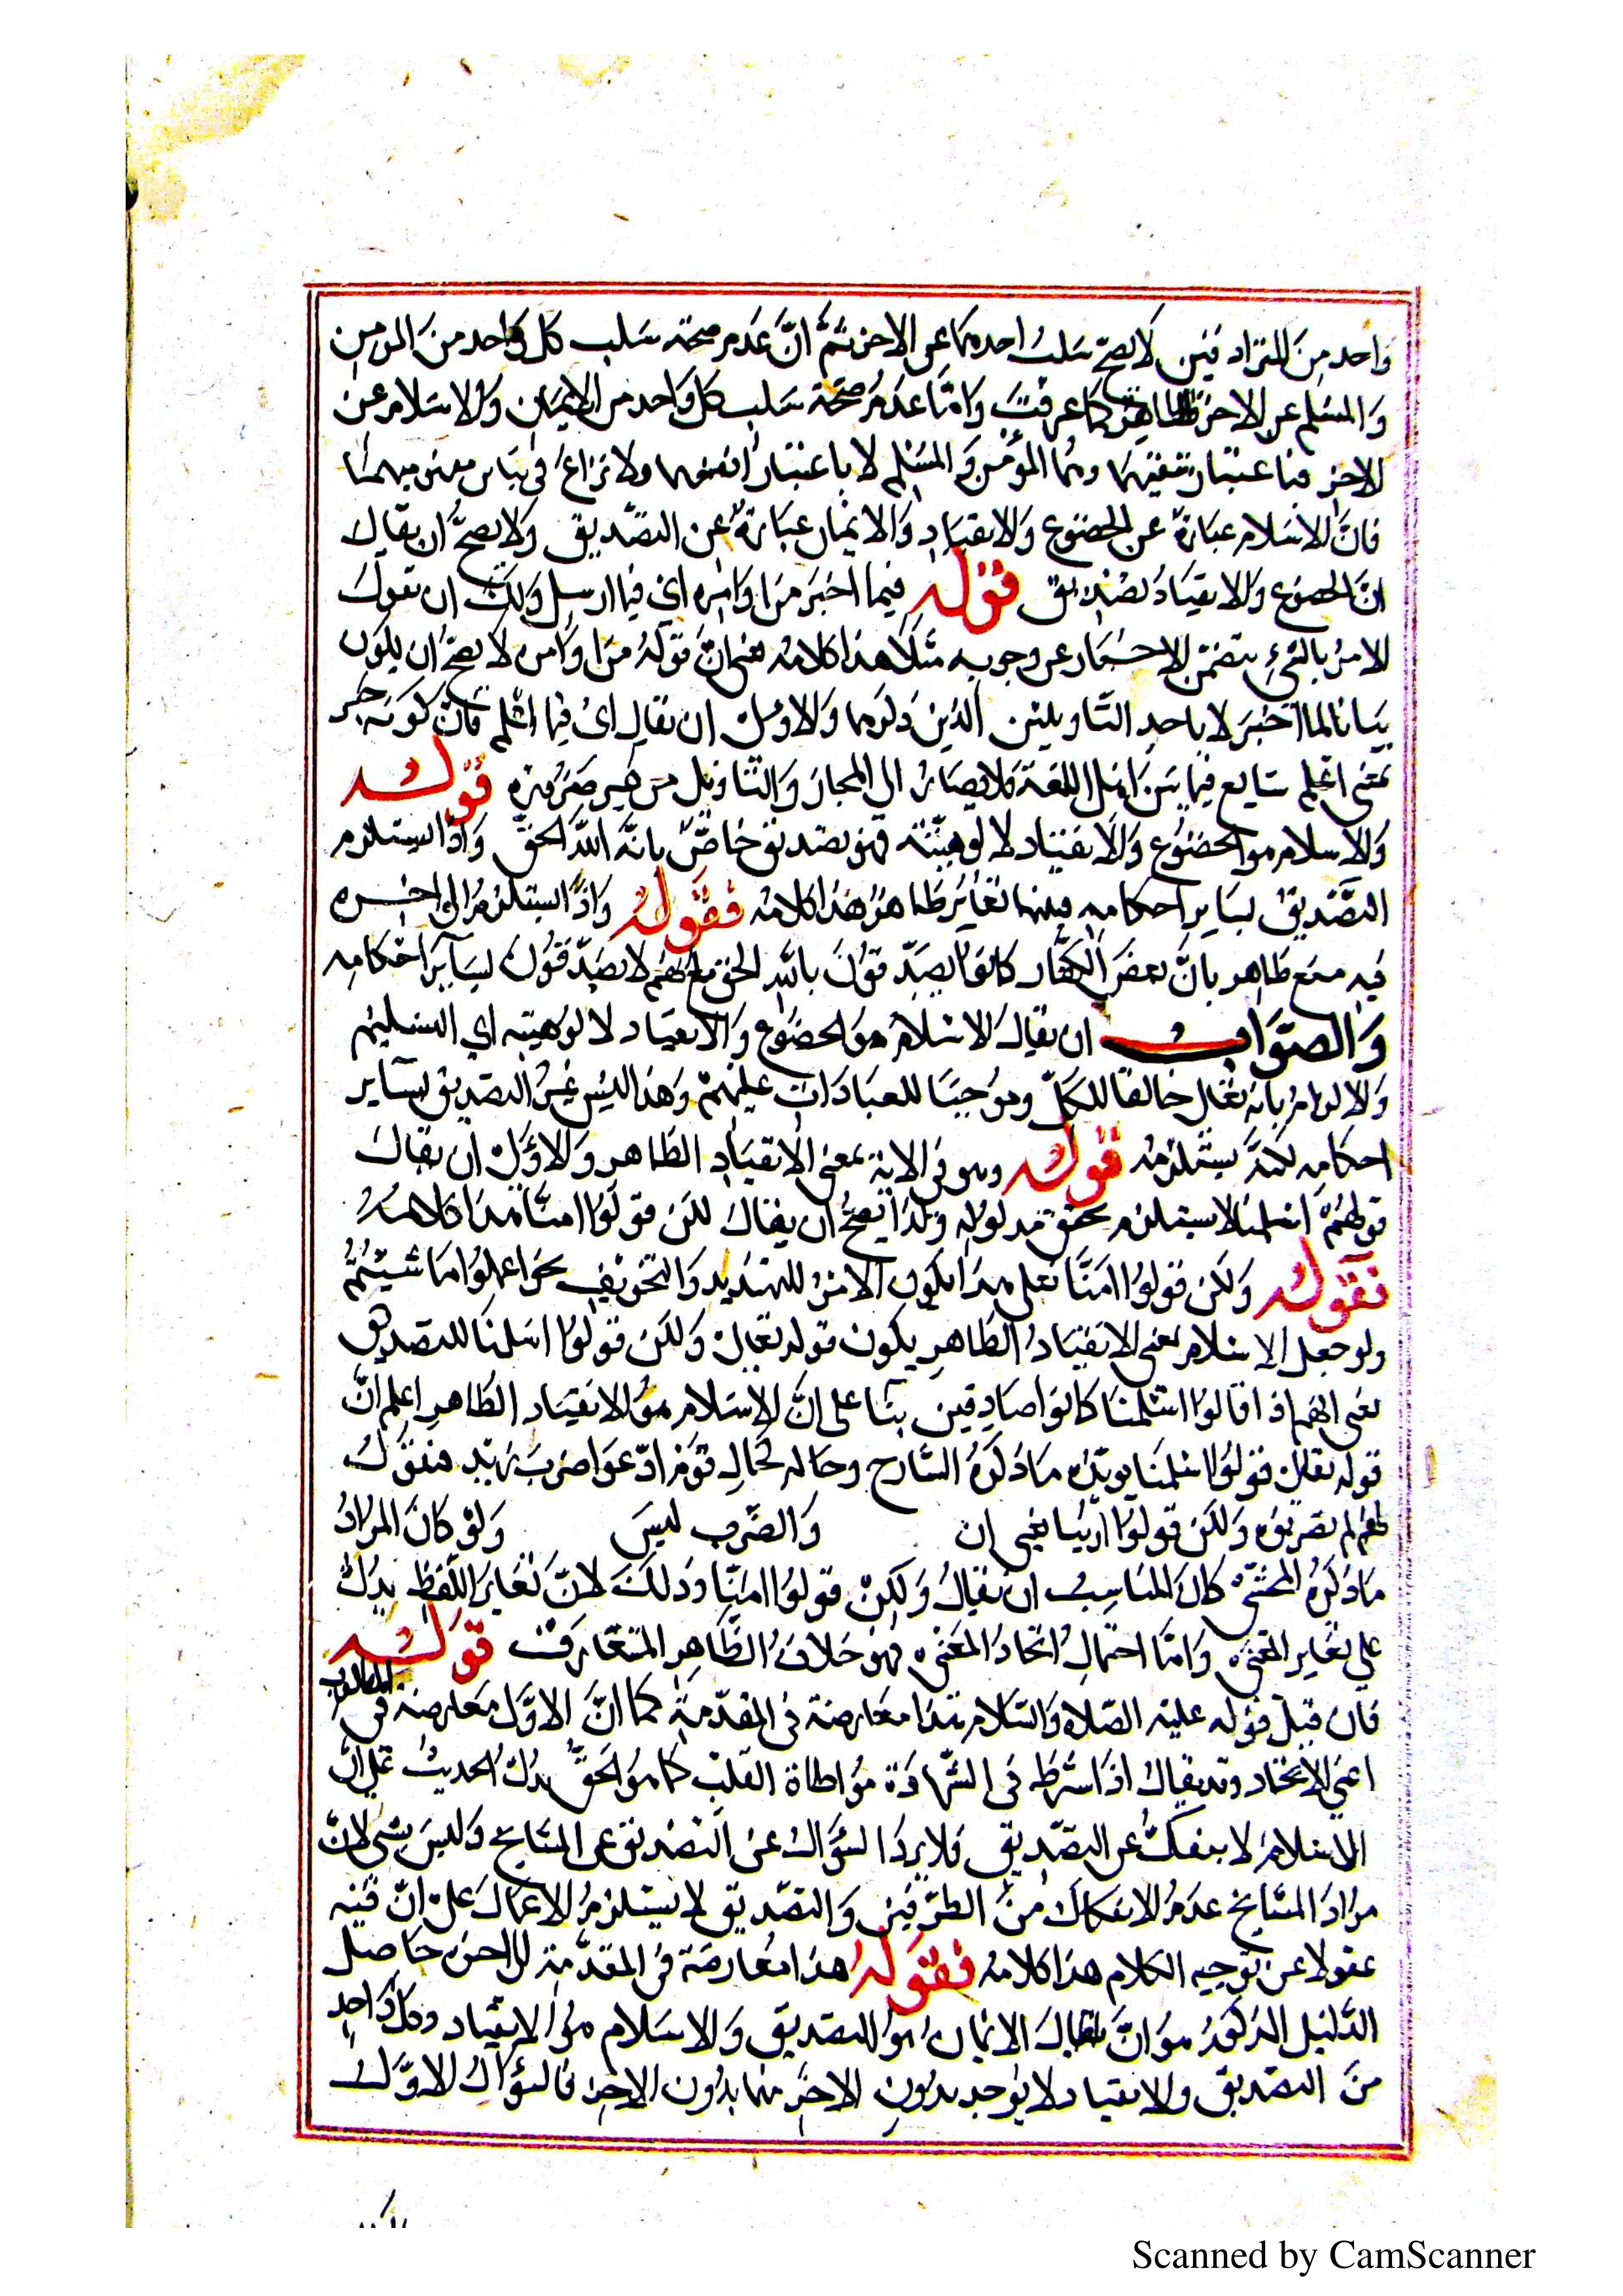 واحد من المترادفين لا يصح سلب احدهما عن الاخر ثم ان عدم صحة سلب كل واحد من المومن
والمسلم عن الاخر ظاهر كما عرفت واما عدم صحة سلب كل واحد من الايمان والاسلام عن
الاخر فباعتبار مشتقيهما وهما المؤمن والمسلم لا باعتبار انفسهما ولا نزاع في تباين مفهوميهما
فان الاسلام عبارة عن الخضوع والانقياد والايمان عبارة عن التصديق ولا يصح ان يقال
ان الخضوع والانقياد تصديق قوله فيما اخبر من اوامره اي فيما ارسل ولك ان تقول
الامر بالشيء يتضمن الاخبار عن وجوبه مثلا هذا كلامه فان قوله من اوامره لا يصح ان يكون
بيانا لما اخبر الا باحد التاويلين الذين ذكرهما والاولى ان يقال اي فيما اعلم فان كونه خبر
بمعنى اعلم شايع فيما بين اهل اللغة فلا يصار الى المجاز والتاويل من غير ضرورة قوله
والاسلام هو الخضوع والانقياد لالوهيته فهو تصديق خاص بانه الله الحق واذا يستلزم
التصديق بساير احكامه فبينهما تغاير ظاهر هذا كلامه فنقول واذا استلزم الى اخره
فيه منع ظاهر بان بعض الكفار كانوا يصدقون بالله الحق مع انهم لا يصدقون بساير احكامه
والصواب ان يقال الاسلام هو الخضوع والانقياد لالوهيته اي التسليم
والالزام بانه تعالى خالقا للكل وموجبا للعبادات عليهم وهذا ليس غير التصديق بساير
احكامه لكنه يستلزمه قوله وهو في الاية بمعنى الانقياد الظاهر والاولى ان يقال
قولهم اسلمنا لا يستلزم تحقق مدلوله ولذا يصح ان يقال لكن قولوا امنا هذا كلامه
فنقول ولكن قولوا امنا فعلى هذا يكون الامر للتهديد والتخويف نحو اعملوا ما شيتم
ولو جعل الاسلام بمعنى الانقياد الظاهر يكون قوله تعالى ولكن قولوا اسلمنا للتصديق
يعني انهم اذا قالوا اسلمنا كانوا صادقين بناء على ان الاسلام هو الانقياد الظاهر اعلم ان
قوله تعالى قولوا اسلمنا يويد ما ذكره الشارح وحاله كحال قوم ادعوا ضرب زيد فنقول
لهم لم تضربوه ولكن قولوا يعني ان والضرب ليس ولو كان المراد
ما ذكره المحشي كان المناسب ان يقال ولكن قولوا امنا وذلك لان تغاير اللفظ يدل
على تغاير المعنى واما احتمال اتحاد المعنى فهو خلاف الظاهر المتعارف قوله
فان قيل قوله عليه الصلاة والسلام هذا معارضة في المقدمة كما ان الاول معارضة في المطلوب
اعني الاتحاد وقد يقال اذا اشترط في الشهادة مواطاة القلب كما هو الحق يدل الحديث على ان
الاسلام لا ينفك عن التصديق فلا يرد السؤال عن التصديق عن المشايخ وليس بشي لان
مراد المشايخ عدم الانفكاك من الطرفين والتصديق لا يستلزم الاعمال على ان فيه
عقولا عن توجيه الكلام هذا كلامه فنقول هذا معارضة في المقدمة الى اخره حاصل
الدليل المذكور هو ان يقال الايمان هو التصديق والاسلام هو الانقياد وكل واحد
من التصديق والانقياد لا يوجد بدون الاخر منهما بدون الاخر فالسؤال الاول
Scanned by CamScanner